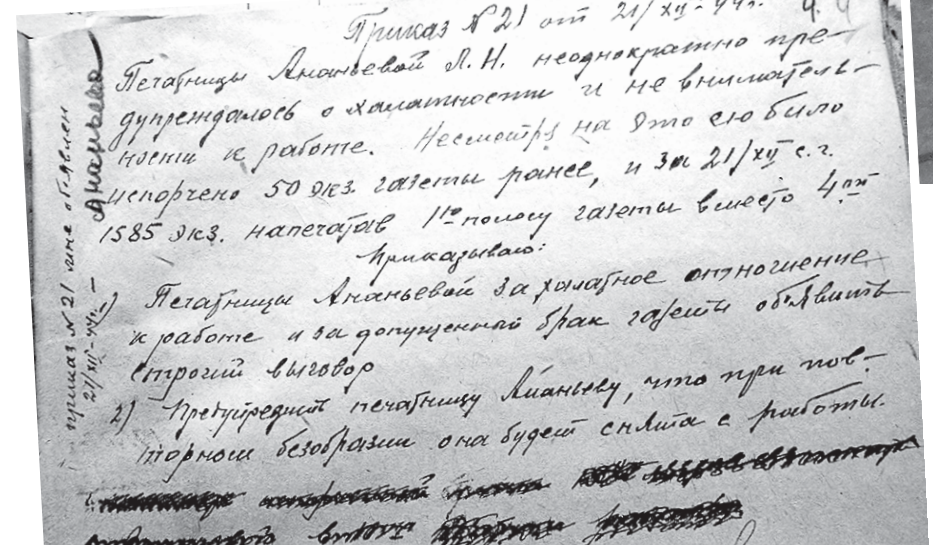 Приказ N 21 от 21/XII-44г.
Печатницы Ананьевой Л.Н. неоднократно пре-
дупреждалось о халатности и не вниматель-
ности к работе. Несмотря на это ею было
испорчено 50 экз. газеты ранее, и за 21/XII с.г.
1585 экз. напечатав 1ю полосу газеты вместо 4ой
Приказываю:
1) Печатницы Ананьевой за халатное отношение
к работе и за допущенный брак газеты об'явить
строгий выговор
2) Предупредить печатницу Ананьеву, что при пов-
торном безобразии она будет снята с работы.
приказ N 21 мне об'явлен
21/XII-44г. — Ананьева